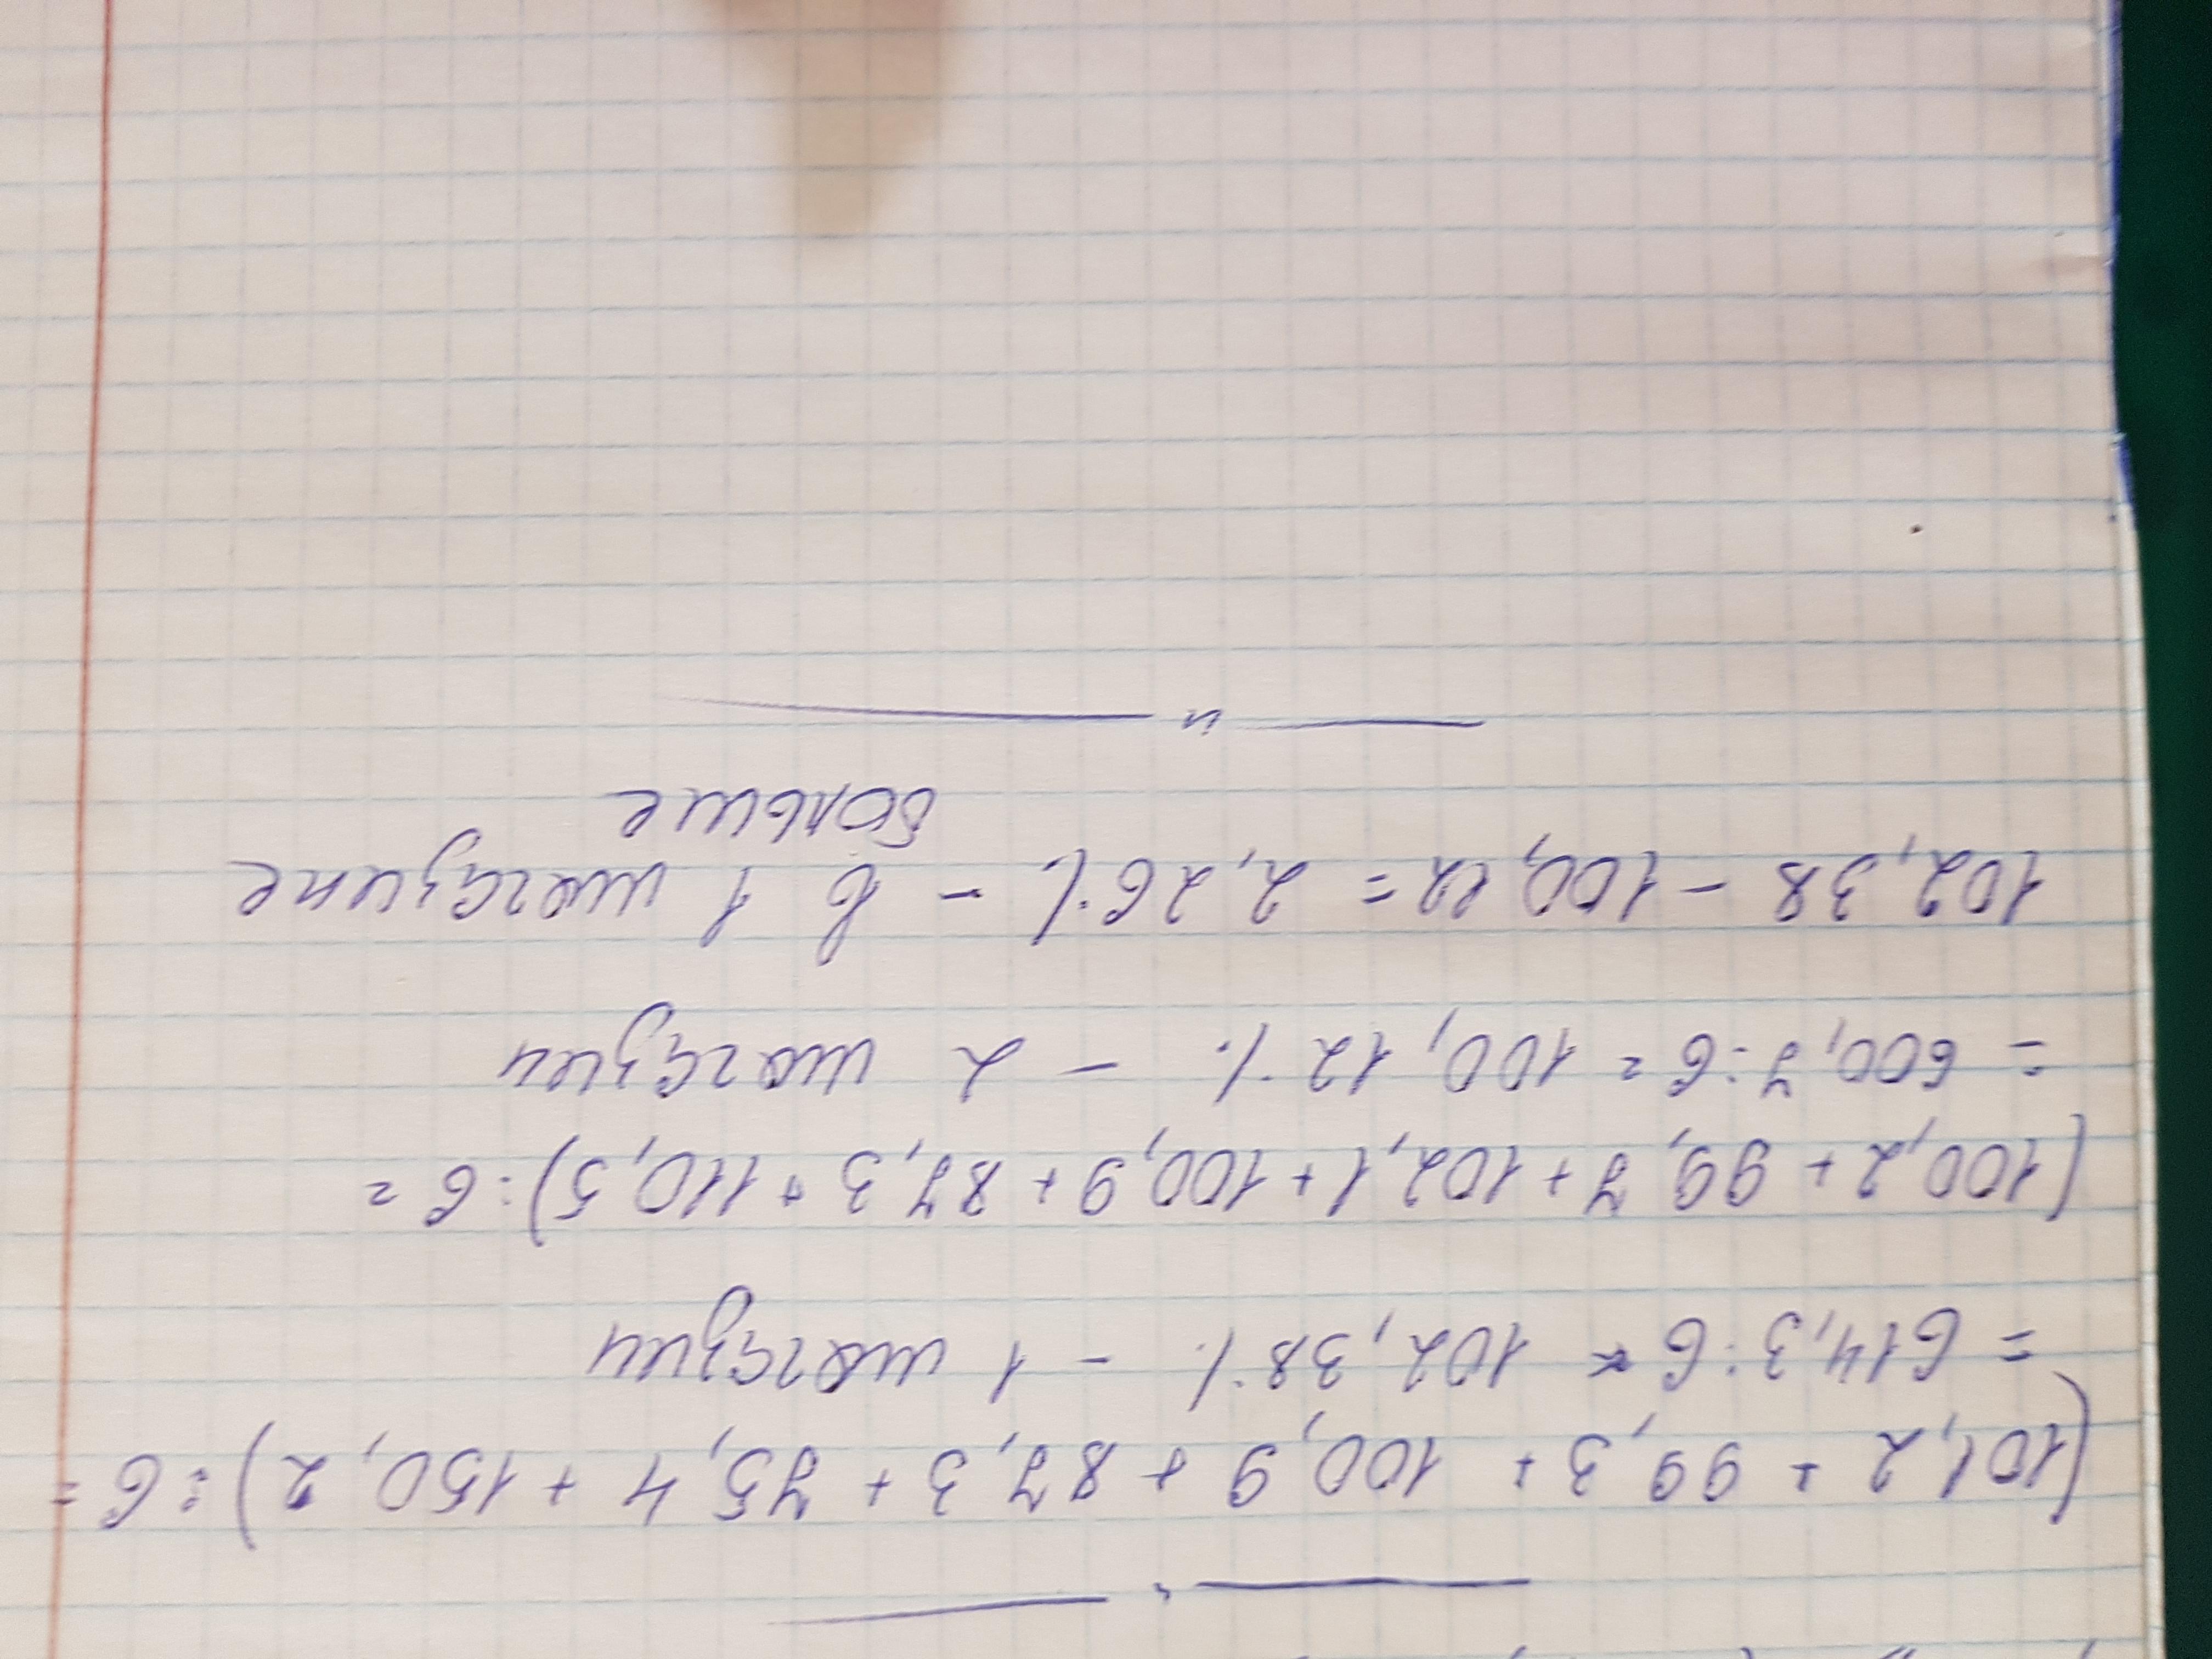 (101,2 + 99,3 + 100,9 + 87,3 + 75,4 + 150,2) : 6 =
= 614,3 : 6 = 102,38 % - 1 магазин
(100,2 + 99,7 + 102,1 + 100,9 + 87,3 + 110,5) : 6 =
= 600,7 : 6 = 100,12 % - 2 магазин
102,38 - 100,12 = 2,26 % - в 1 магазине
больше
— " —